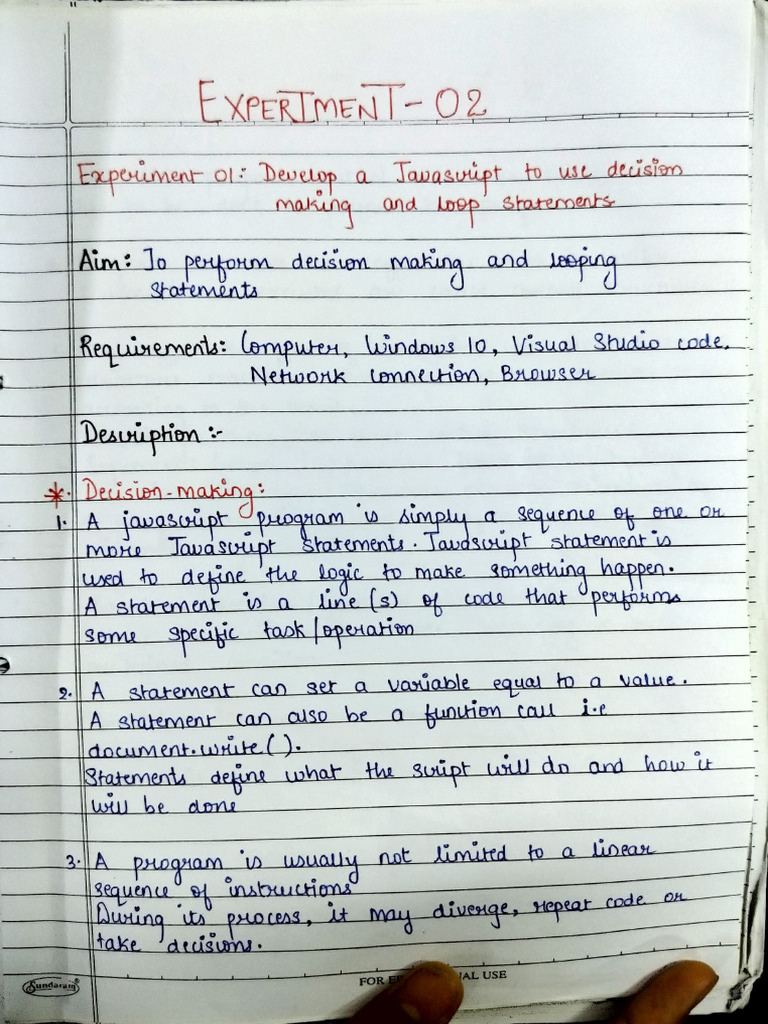 EXPERIMENT-02
Experiment 01: Develop a Javascript to use decision
making and loop statements
Aim: To perform decision making and looping
statements
Requirements: Computer, Windows 10, Visual Studio code,
Network connection, Browser
Description :-
*. Decision-making:
1. A javascript program is simply a sequence of one or
more Javascript statements. Javascript statement is
used to define the logic to make something happen.
A statement is a line(s) of code that performs
some specific task/operation
2. A statement can set a variable equal to a value.
A statement can also be a function call i.e
document.write().
Statements define what the script will do and how it
will be done
3. A program is usually not limited to a linear
sequence of instructions
During its process, it may diverge, repeat code or
take decisions.
Sundaram
FOR USE